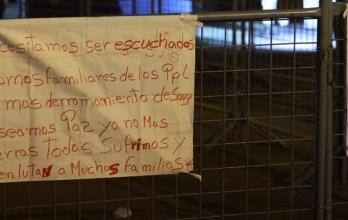 cesitamos ser escuchados
omos familiares de los Ppl
mas derramamiento de Sangre
seamos Paz ya no Mas
erras todos Sufrimos y
enlutan a Muchas familias